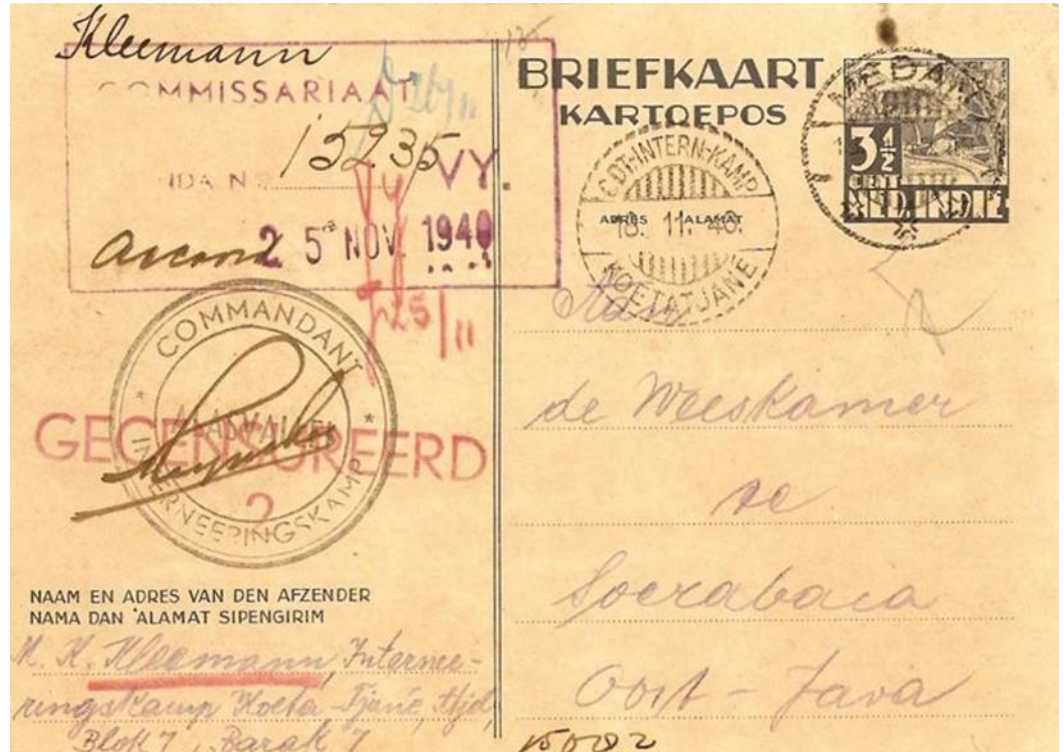 Kleemann
COMMISSARIAAT
15235
VY.
accoord
25 NOV. 1940
25/11
COMMANDANT
INTERNEERINGSKAMP
GECENSUREERD
2
NAAM EN ADRES VAN DEN AFZENDER
NAMA DAN ALAMAT SIPENGIRIM
M. K. Kleemann, Internee-
ringskamp Koeta-Tjane,
Blok 7, Barak 7
BRIEFKAART
KARTOEPOS
MEDAN
3½
CENT
NED. INDIE
CDT-INTERN-KAMP
ADRES ALAMAT
18. 11. 40.
KOETATJANE
Aan
de Weeskamer
te
Soerabaia
Oost-Java